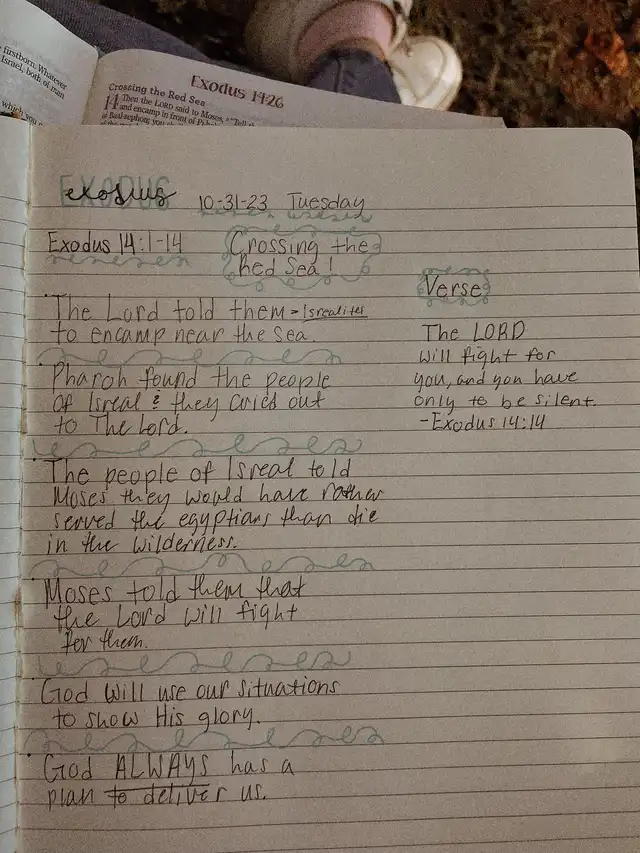 firstborn. Whatever
Israel, both of man
which you
Exodus 14:26
Crossing the Red Sea
14 Then the LORD said to Moses, "Tell
and encamp in front of
exodus
EXODUS
10-31-23 Tuesday
Exodus 14:1-14
Crossing the
Red Sea!
· The Lord told them - Isrealites
to encamp near the Sea.
· Pharoh found the people
of Isreal & they cried out
to The Lord.
· The people of Isreal told
Moses they would have rather
served the egyptians than die
in the wilderness.
· Moses told them that
the Lord will fight
for them.
· God will use our situations
to show His glory.
· God ALWAYS has a
plan to deliver us.
Verse
The LORD
will fight for
you, and you have
only to be silent.
-Exodus 14:14